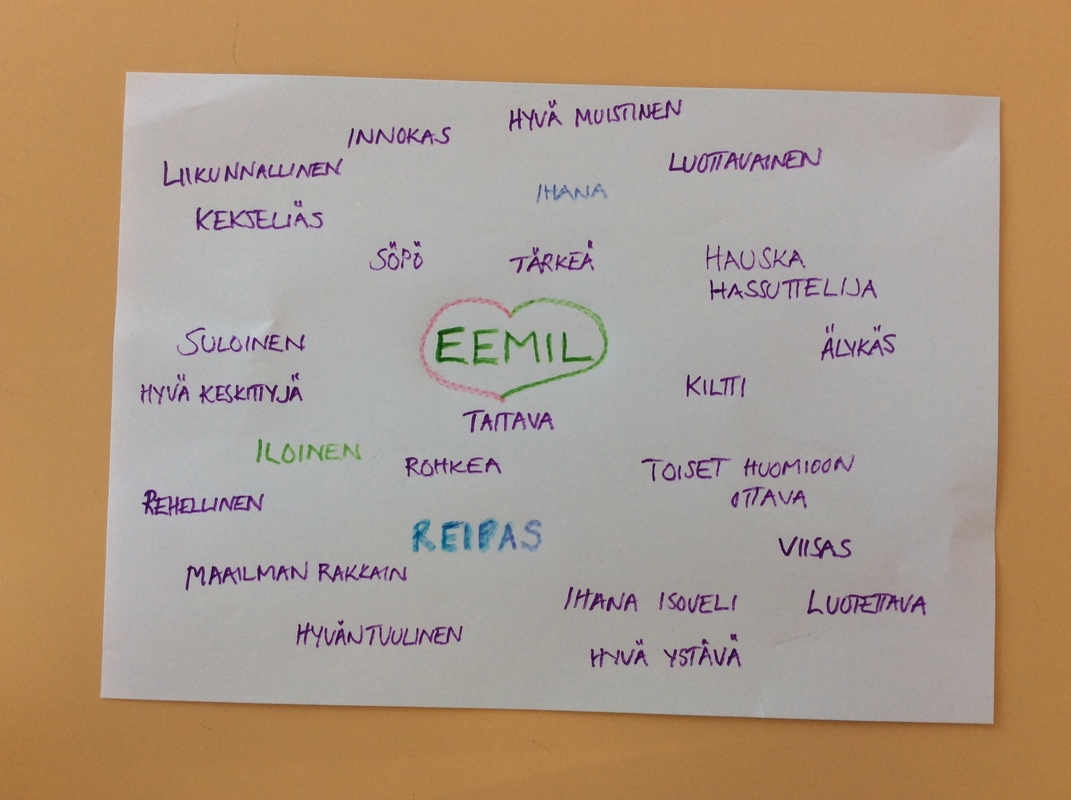 HYVÄ MUISTINEN
INNOKAS
LIIKUNNALLINEN
LUOTTAVAINEN
IHANA
KEKSELIÄS
SÖPÖ
TÄRKEÄ
HAUSKA
HASSUTTELIJA
SULOINEN
EEMIL
ÄLYKÄS
HYVÄ KESKITTYJÄ
KILTTI
TAITAVA
ILOINEN
ROHKEA
TOISET HUOMIOON
OTTAVA
REHELLINEN
REIPAS
VIISAS
MAAILMAN RAKKAIN
IHANA ISOVELI
LUOTETTAVA
HYVÄNTUULINEN
HYVÄ YSTÄVÄ